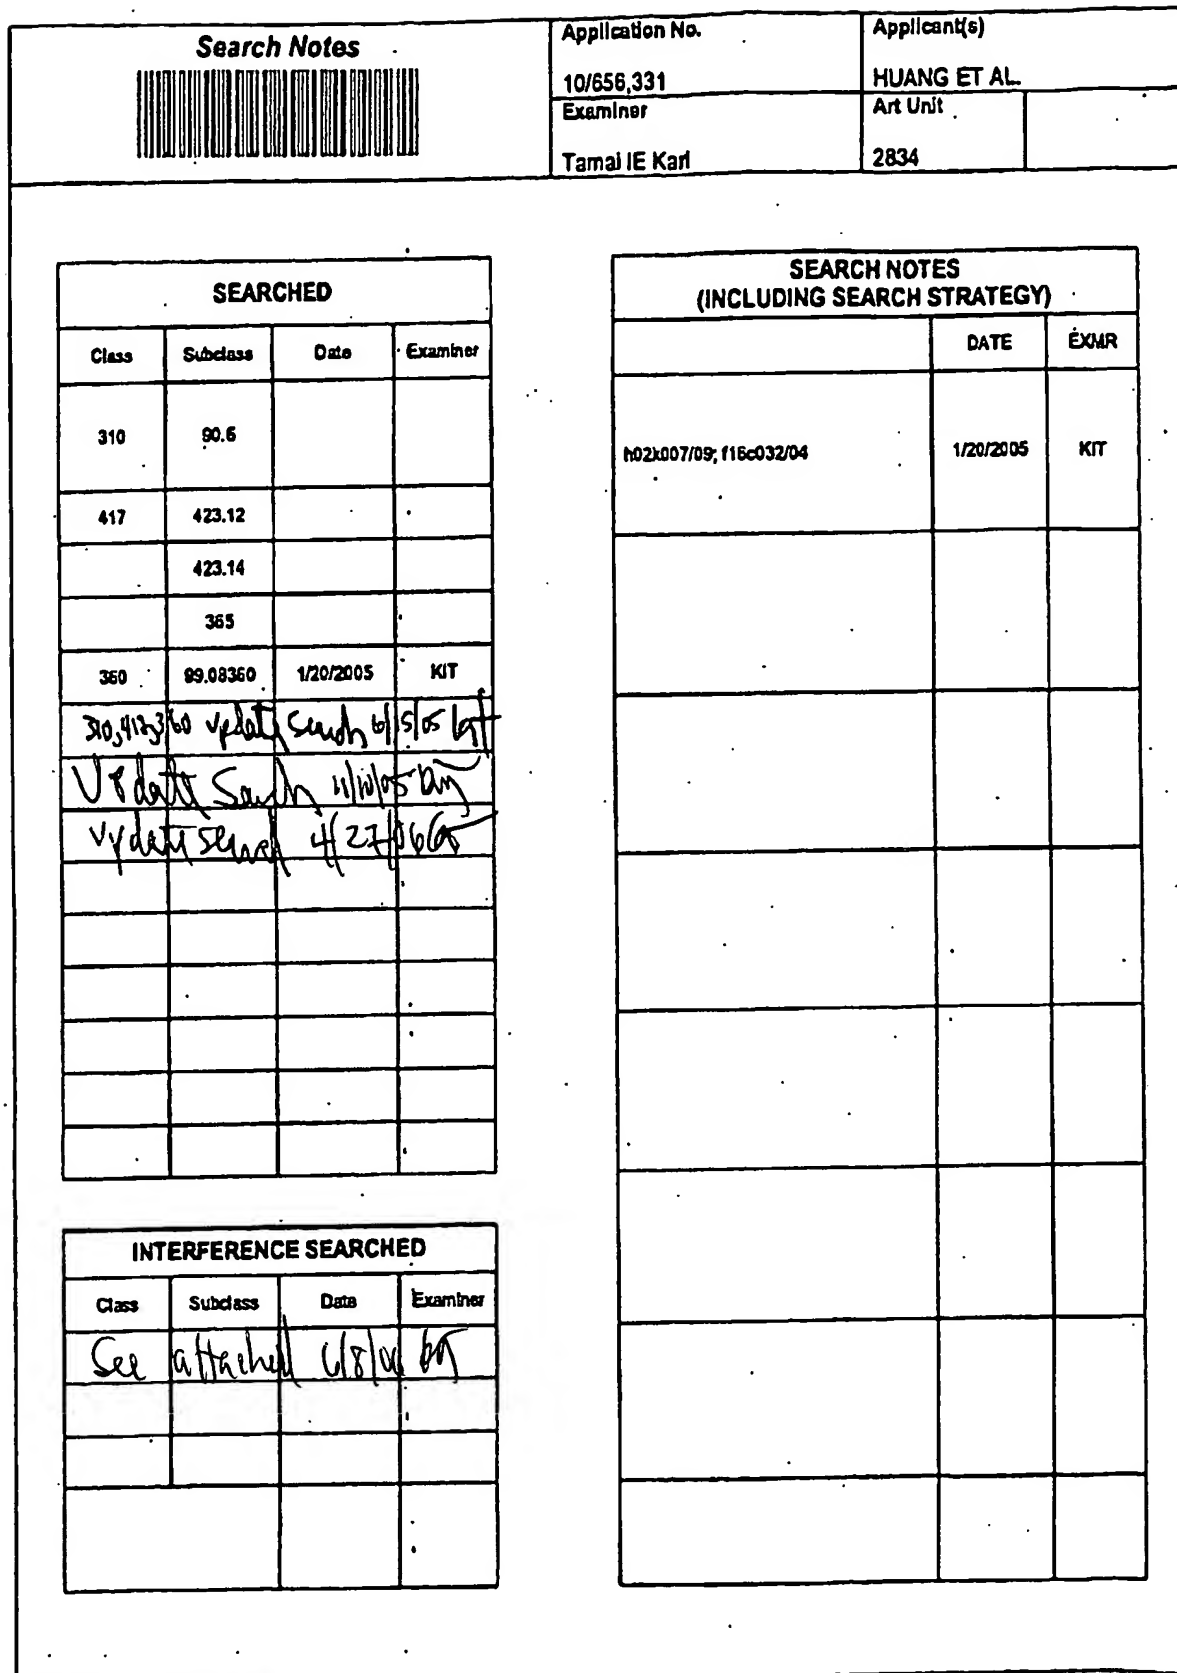 Search Notes
Application No.
10/656,331
Applicant(s)
HUANG ET AL.
Examiner
Tamai IE Karl
Art Unit
2834
SEARCHED
Class Subclass Date Examiner
310 90.6
417 423.12
423.14
365
360 99.08360 1/20/2005 KIT
310, 417, 360 update search 6/15/05
Update Search 11/10/05
update search 4/27/06
INTERFERENCE SEARCHED
Class Subclass Date Examiner
See attached 6/8/06
SEARCH NOTES
(INCLUDING SEARCH STRATEGY)
DATE EXMR
h02k007/09; f16c032/04 1/20/2005 KIT